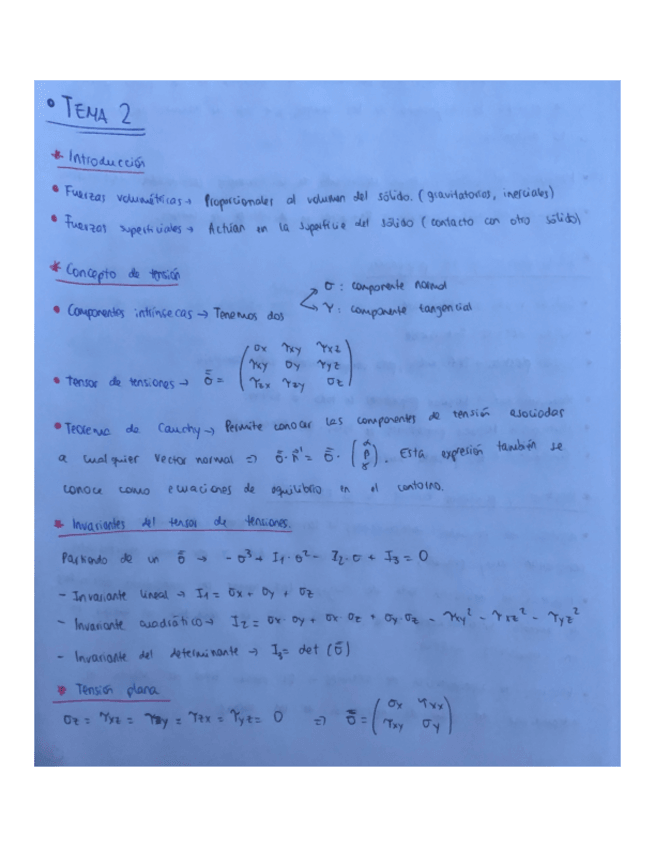 • TEMA 2
* Introducción
• Fuerzas volumétricas → Proporcionales al volumen del sólido. (gravitatorias, inerciales)
• Fuerzas superficiales → Actúan en la superficie del sólido (contacto con otro sólido)
* Concepto de tensión
σ : componente normal
• Componentes intrínsecas → Tenemos dos
τ : componente tangencial
σx τxy τxz
τxy σy τyz
• Tensor de tensiones → σ̿ =
τzx τzy σz
• Teorema de Cauchy → Permite conocer las componentes de tensión asociadas
a cualquier vector normal ⇒ σ̿ · n⃗ = σ̿ · (α β γ). Esta expresión también se
conoce como ecuaciones de equilibrio en el contorno.
* Invariantes del tensor de tensiones.
Partiendo de un σ̿ → - σ³ + I₁ · σ² - I₂ · σ + I₃ = 0
- Invariante lineal → I₁ = σx + σy + σz
- Invariante cuadrático → I₂ = σx · σy + σx · σz + σy · σz - τxy² - τxz² - τyz²
- Invariante del determinante → I₃ = det (σ̿)
* Tensión plana
σz = τxz = τzy = τzx = τyz = 0 ⇒ σ̿ = (σx τyx
τxy σy)